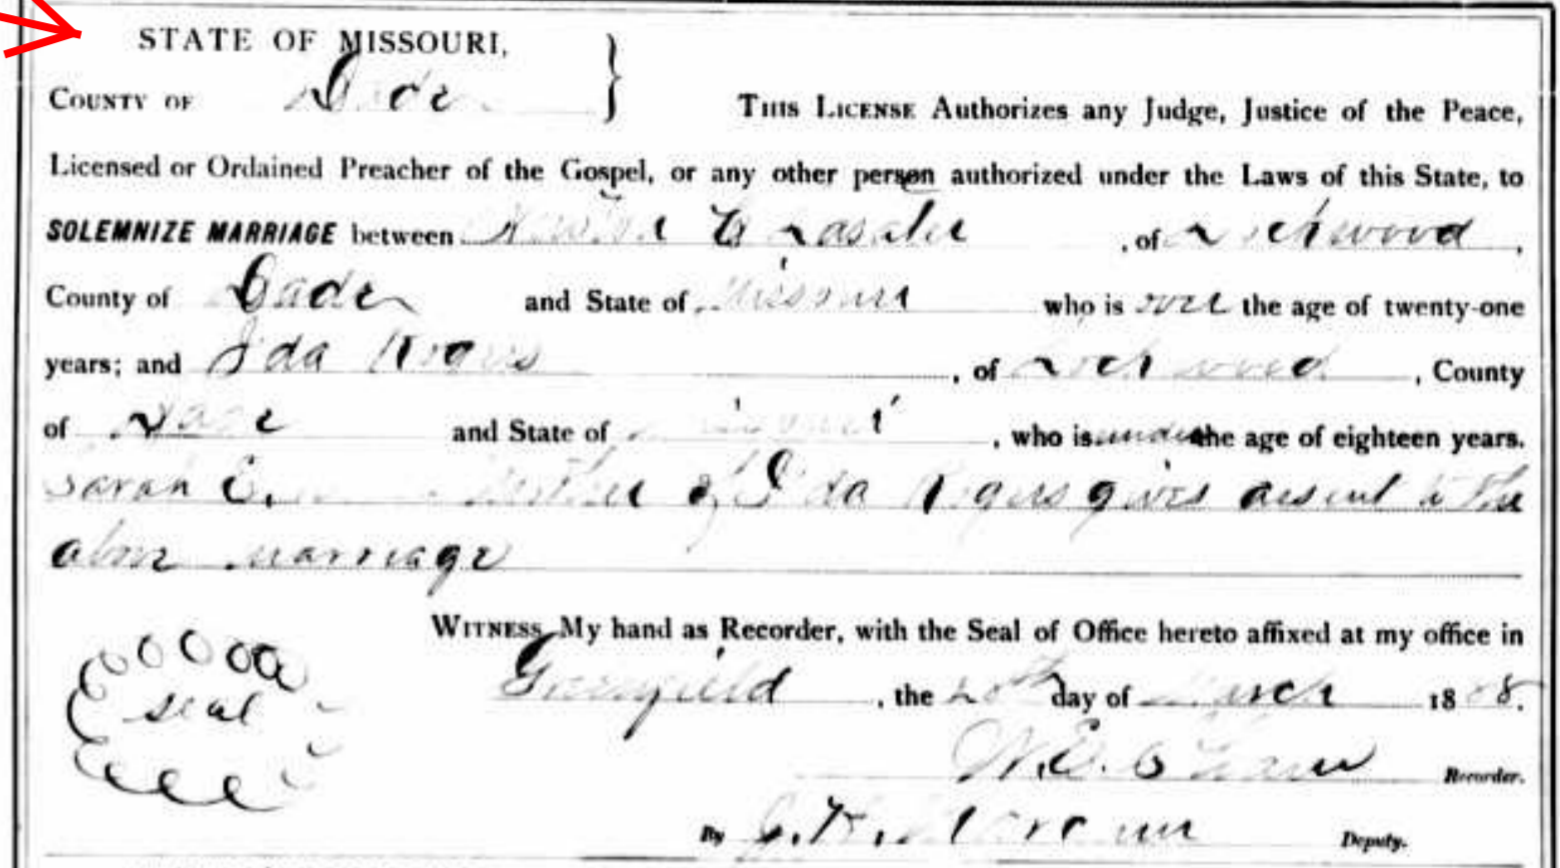 STATE OF MISSOURI,
COUNTY OF Dade
THIS LICENSE Authorizes any Judge, Justice of the Peace,
Licensed or Ordained Preacher of the Gospel, or any other person authorized under the Laws of this State, to
SOLEMNIZE MARRIAGE between Lasater, of Lockwood,
County of Dade and State of Missouri who is over the age of twenty-one
years; and Ida Rogers, of Lockwood, County
of Dade and State of Missouri, who is under the age of eighteen years.
Sarah E. mother of Ida Rogers gives assent to the
above marriage
WITNESS My hand as Recorder, with the Seal of Office hereto affixed at my office in
seal
Greenfield, the 20th day of March 1888.
W.E. Recorder.
By Deputy.